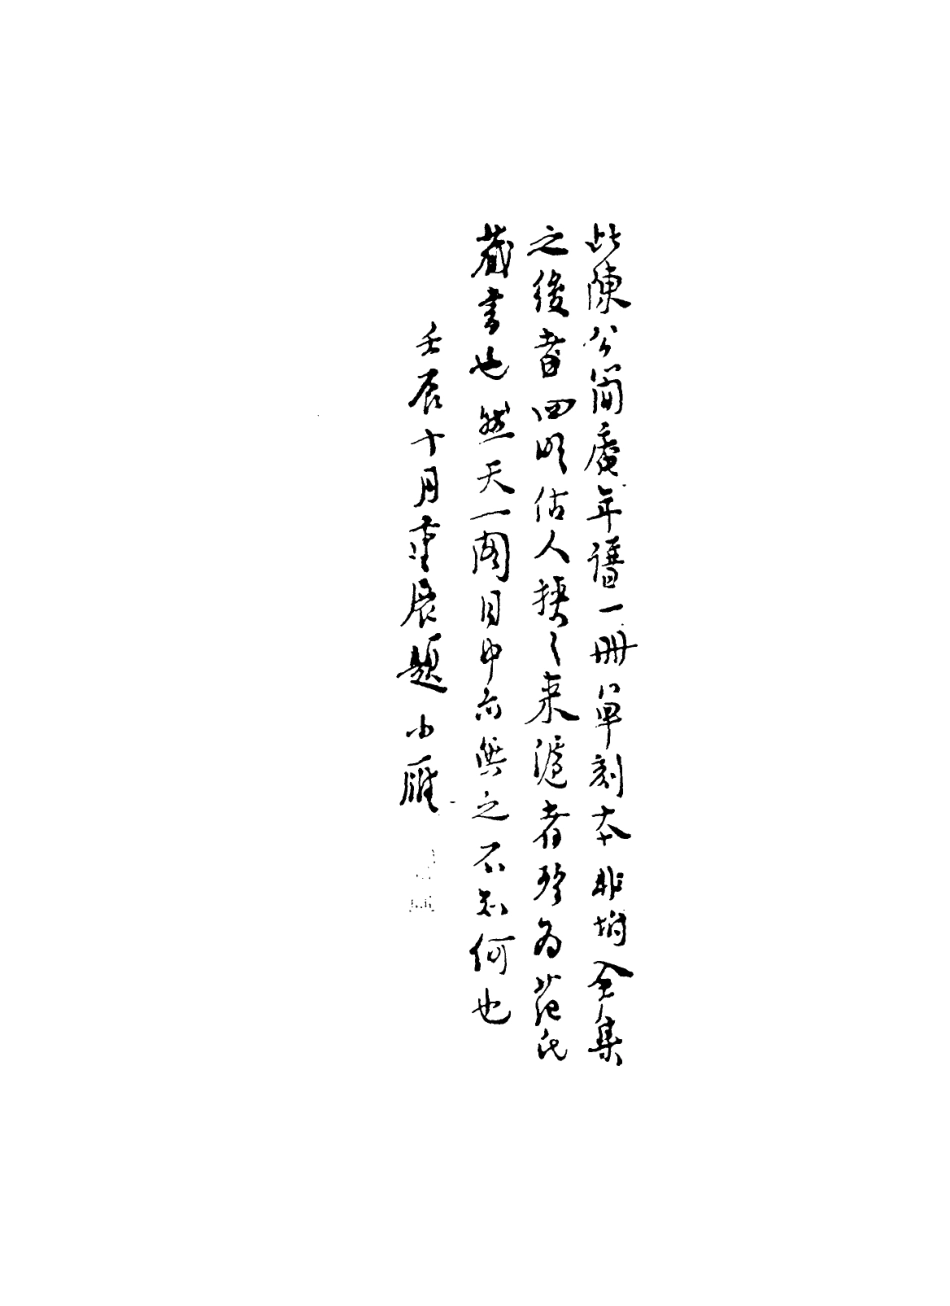 此陳公簡齋年譜一冊單刻本非坿全集
之後者四明估人挾之來滬者疑為范氏
藏書也然天一閣目中亦無之不知何也
壬辰十月重展題小雁